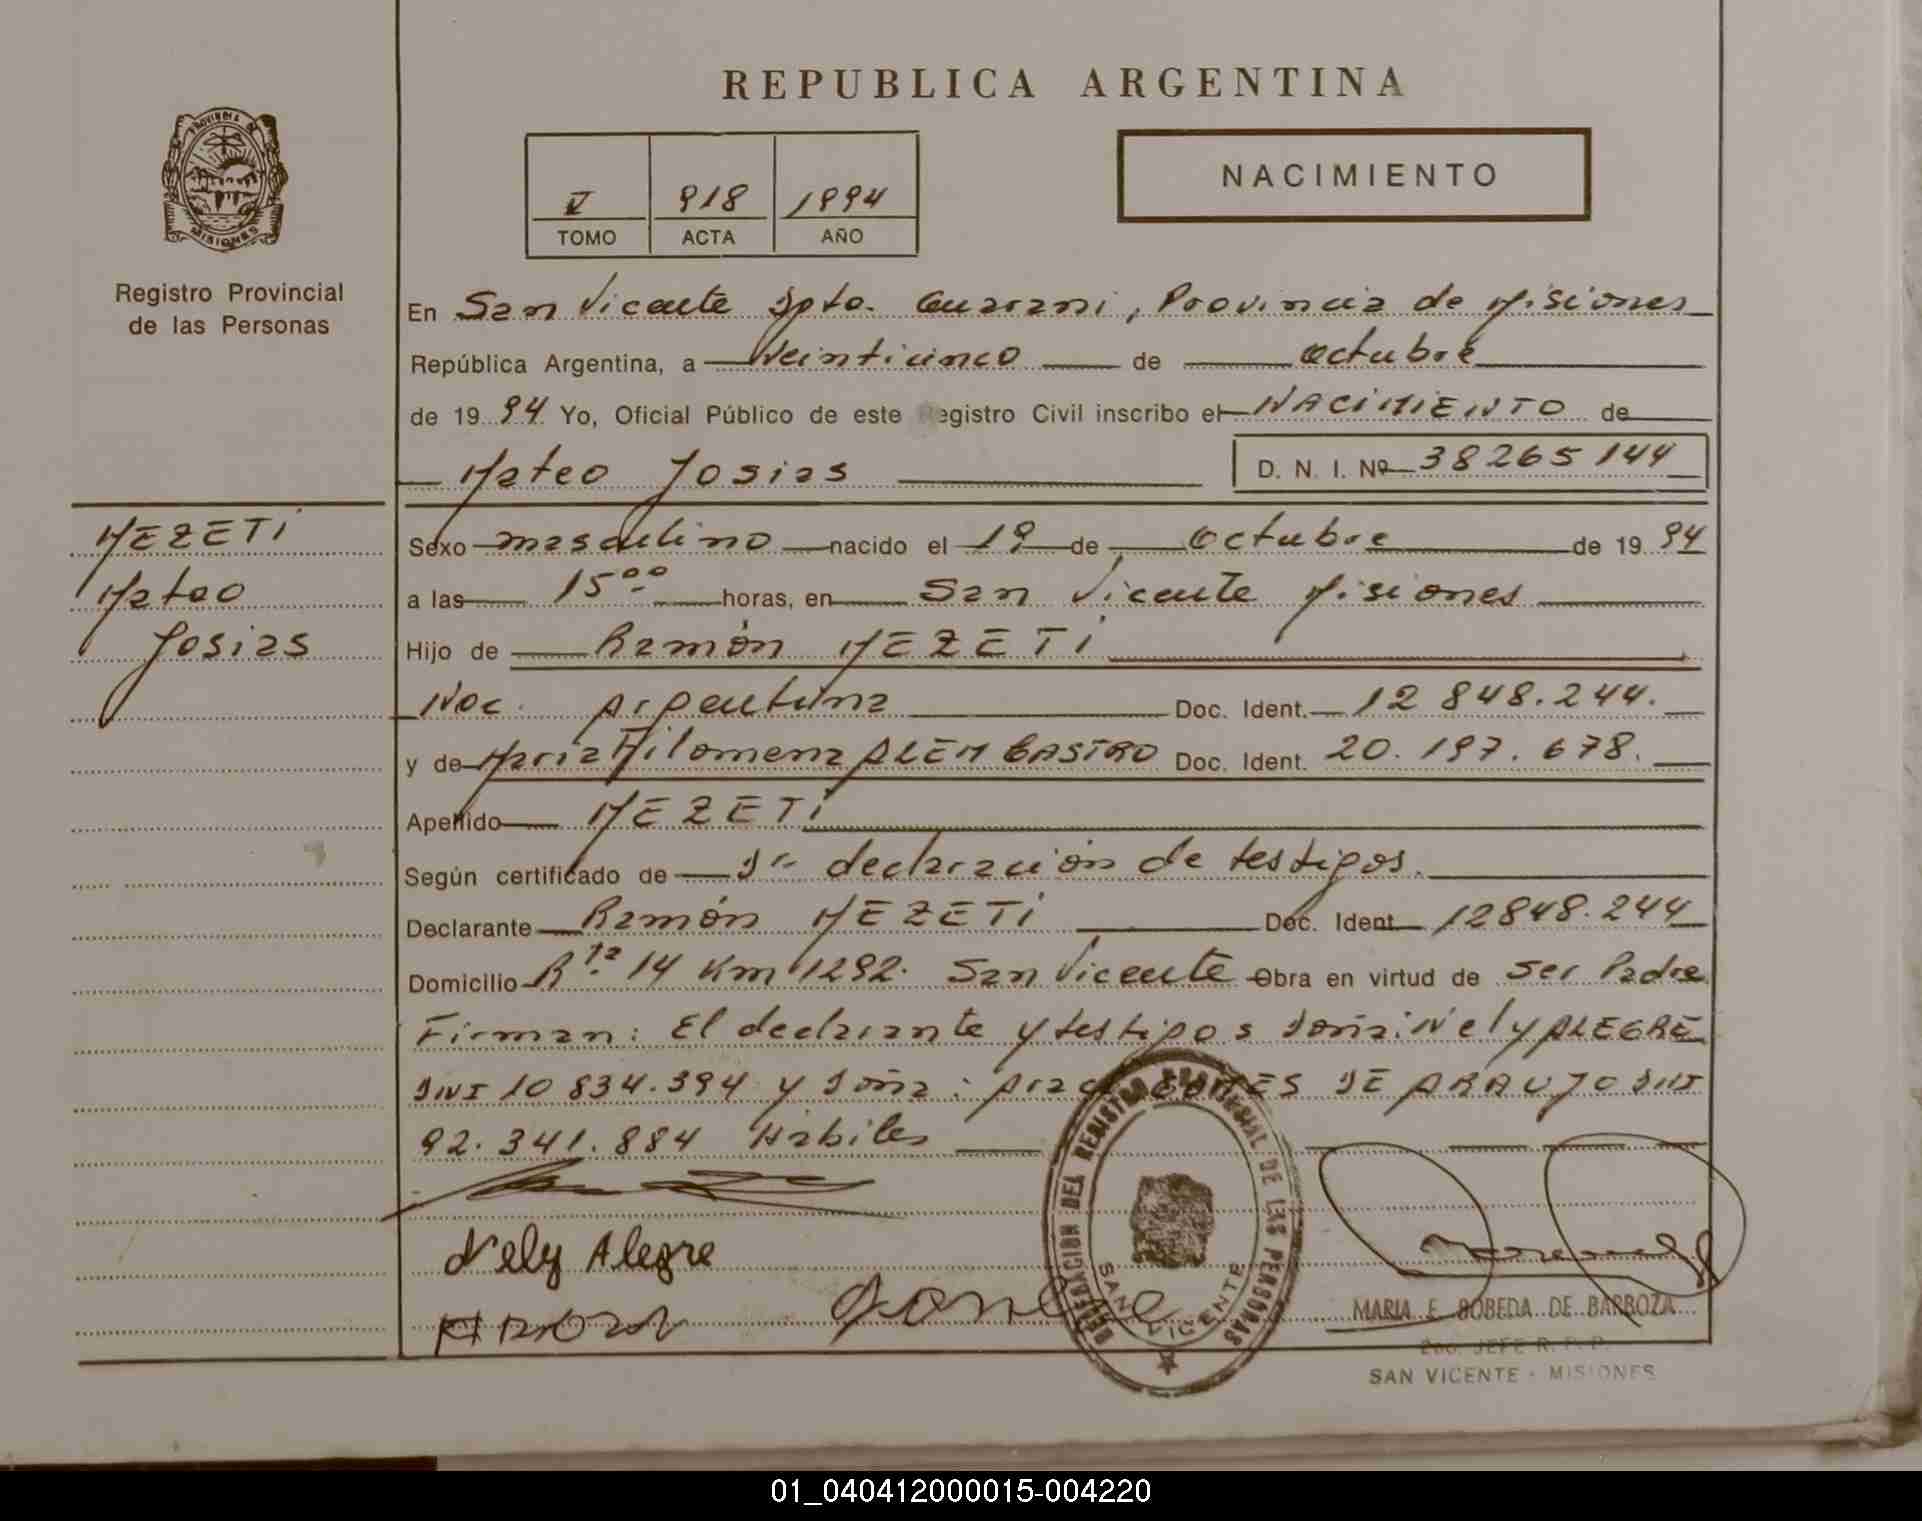 REPUBLICA ARGENTINA
PROVINCIA DE
MISIONES
Registro Provincial
de las Personas
V 918 1994
TOMO ACTA AÑO
NACIMIENTO
En San Vicente Dpto. Guarani, Provincia de Misiones
República Argentina, a Veinticinco de octubre
de 19 94 Yo, Oficial Público de este Registro Civil inscribo el NACIMIENTO de
Mateo Josias D. N. I. Nº 38265144
MEZETI
Mateo
Josias
Sexo masculino nacido el 19 de octubre de 19 94
a las 15ºº horas, en San Vicente Misiones
Hijo de Ramón MEZETI
Nac. Argentina Doc. Ident. 12 848.244.
y de Maria Filomena ALEM CASTRO Doc. Ident. 20.197.678.
Apellido MEZETI
Según certificado de declaración de testigos.
Declarante Ramón MEZETI Doc. Ident. 12848.244
Domicilio Rta. 14 Km 1292. San Vicente Obra en virtud de ser Padre
Firman: El declarante y testigos doña: Nely ALEGRE
DNI 10 834.394 y doña: DE ARAUJO DNI
92.341.884 Hábiles
Nely Alegre
DELEGACION DEL REGISTRO PROVINCIAL DE LAS PERSONAS
SAN VICENTE
MARIA E. BOBEDA DE BARBOZA
2do. JEFE R. P. P.
SAN VICENTE - MISIONES
01_040412000015-004220